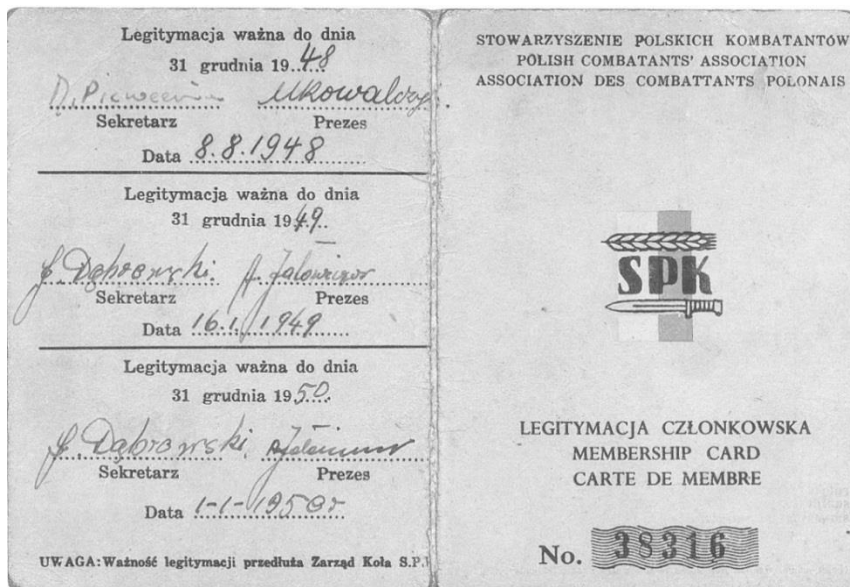 Legitymacja ważna do dnia
31 grudnia 1948
Sekretarz Prezes
Data 8.8.1948
Legitymacja ważna do dnia
31 grudnia 1949.
J. Dąbrowski.
Sekretarz Prezes
Data 16.1.1949
Legitymacja ważna do dnia
31 grudnia 1950.
J. Dąbrowski
Sekretarz Prezes
Data 1-1-1950r
UWAGA: Ważność legitymacji przedłuża Zarząd Koła S.P.
STOWARZYSZENIE POLSKICH KOMBATANTÓW
POLISH COMBATANTS' ASSOCIATION
ASSOCIATION DES COMBATTANTS POLONAIS
SPK
LEGITYMACJA CZŁONKOWSKA
MEMBERSHIP CARD
CARTE DE MEMBRE
No. 38316